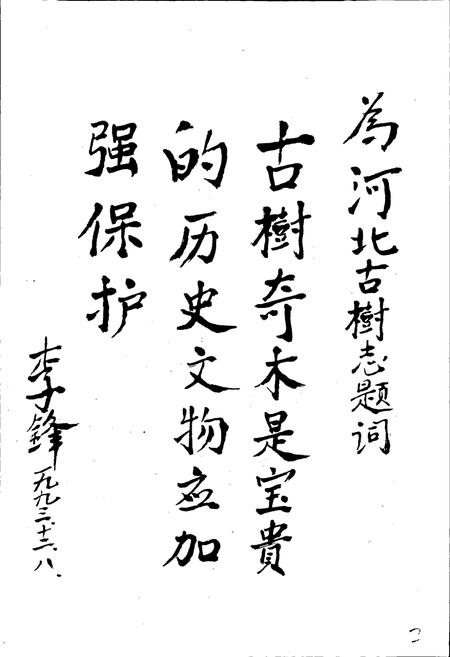 为河北古樹志题词
古樹奇木是宝貴
的历史文物应加
强保护
李鋒
一九九三.十二.八.